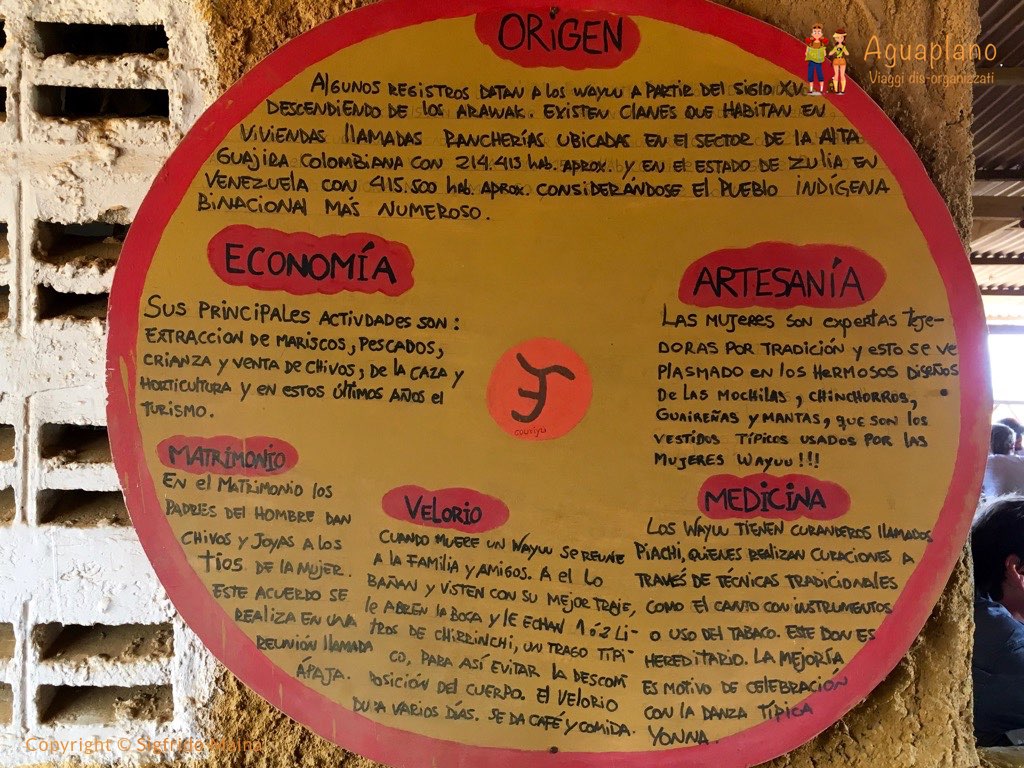 ORIGEN
Aguaplano
Viaggi dis-organizzati
ALGUNOS REGISTROS DATAN A LOS WAYUU A PARTIR DEL SIGLO XV
DESCENDIENDO DE LOS ARAWAK. EXISTEN CLANES QUE HABITAN EN
VIVIENDAS LLAMADAS RANCHERÍAS UBICADAS EN EL SECTOR DE LA ALTA
GUAJIRA COLOMBIANA CON 214.413 hab. APROX. Y EN EL ESTADO DE ZULIA EN
VENEZUELA CON 415.500 hab. APROX. CONSIDERÁNDOSE EL PUEBLO INDÍGENA
BINACIONAL MÁS NUMEROSO.
ECONOMÍA
SUS PRINCIPALES ACTIVDADES SON:
EXTRACCION DE MARISCOS, PESCADOS,
CRIANZA Y VENTA DE CHIVOS, DE LA CAZA Y
HORTICULTURA Y EN ESTOS ÚLTIMOS AÑOS EL
TURISMO.
ARTESANÍA
LAS MUJERES SON EXPERTAS TEJE-
DORAS POR TRADICIÓN Y ESTO SE VE
PLASMADO EN LOS HERMOSOS DISEÑOS
DE LAS MOCHILAS, CHINCHORROS,
GUAIREÑAS Y MANTAS, QUE SON LOS
VESTIDOS TÍPICOS USADOS POR LAS
MUJERES WAYUU!!!
MATRIMONIO
EN EL MATRIMONIO LOS
PADRES DEL HOMBRE DAN
CHIVOS Y JOYAS A LOS
TIOS DE LA MUJER.
ESTE ACUERDO SE
REALIZA EN UNA
REUNIÓN LLAMADA
ÁPAJA.
VELORIO
CUANDO MUERE UN WAYUU SE REUNE
A LA FAMILIA Y AMIGOS. A EL LO
BAÑAN Y VISTEN CON SU MEJOR TRAJE,
LE ABREN LA BOCA Y LE ECHAN 1 ó 2 LI-
TROS DE CHIRRINCHI, UN TRAGO TIPI-
CO, PARA ASÍ EVITAR LA DESCOM
POSICIÓN DEL CUERPO. EL VELORIO
DURA VARIOS DÍAS. SE DA CAFÉ Y COMIDA.
MEDICINA
LOS WAYUU TIENEN CURANDEROS LLAMADOS
PIACHI, QUIENES REALIZAN CURACIONES A
TRAVÉS DE TÉCNICAS TRADICIONALES
COMO EL CANTO CON INSTRUMENTOS
O USO DEL TABACO. ESTE DON ES
HEREDITARIO. LA MEJORÍA
ES MOTIVO DE CELEBRACIÓN
CON LA DANZA TÍPICA
YONNA.
Copyright ©